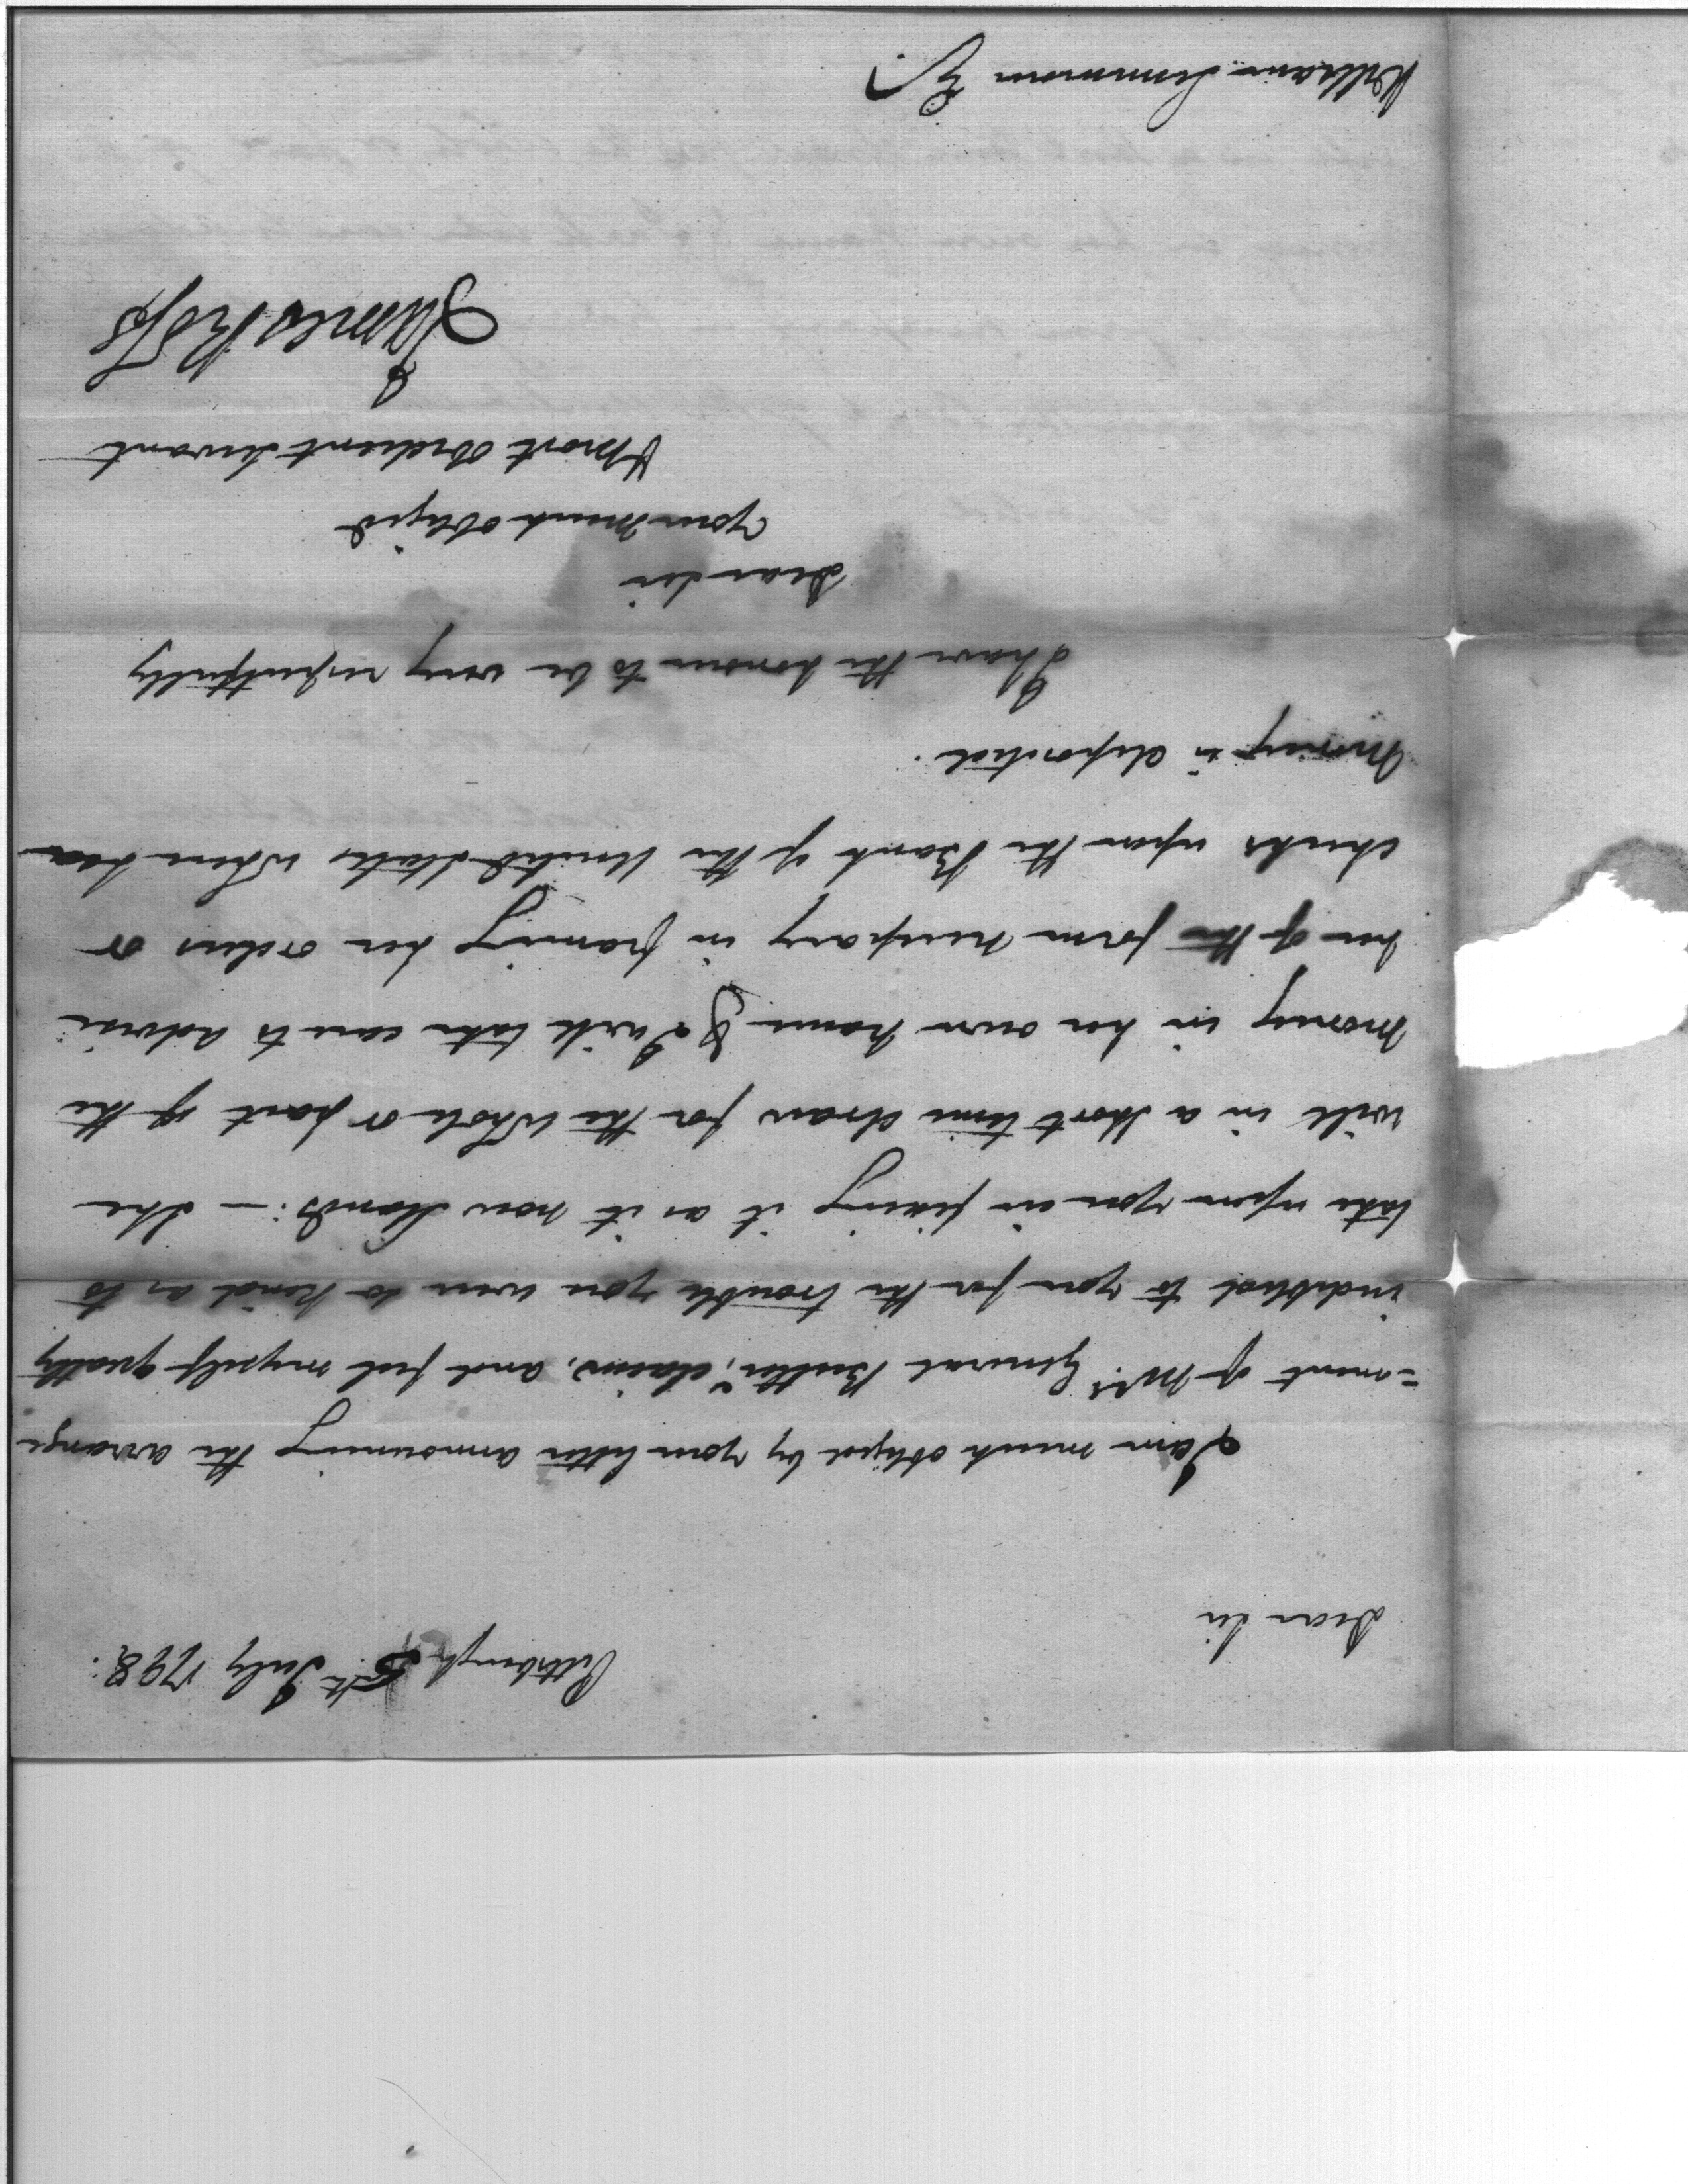 Pittsburgh 5th July 1798.
Dear Sir
I am much obliged by your letter announcing the arrange
=ment of Mrs. General Butler's claim, and feel myself greatly
indebted to you for the trouble you were so kind as to
take upon you in fixing it as it now stands: — She
will in a short time draw for the whole or part of the
money in her own name & I will take care to advise
her of the form necessary in framing her orders or
checks upon the Bank of the United States where her
money is deposited.
I have the honour to be very respectfully
Dear Sir
your much obliged
& most Obedient Servant
James Ross
William Simmons Esqr.